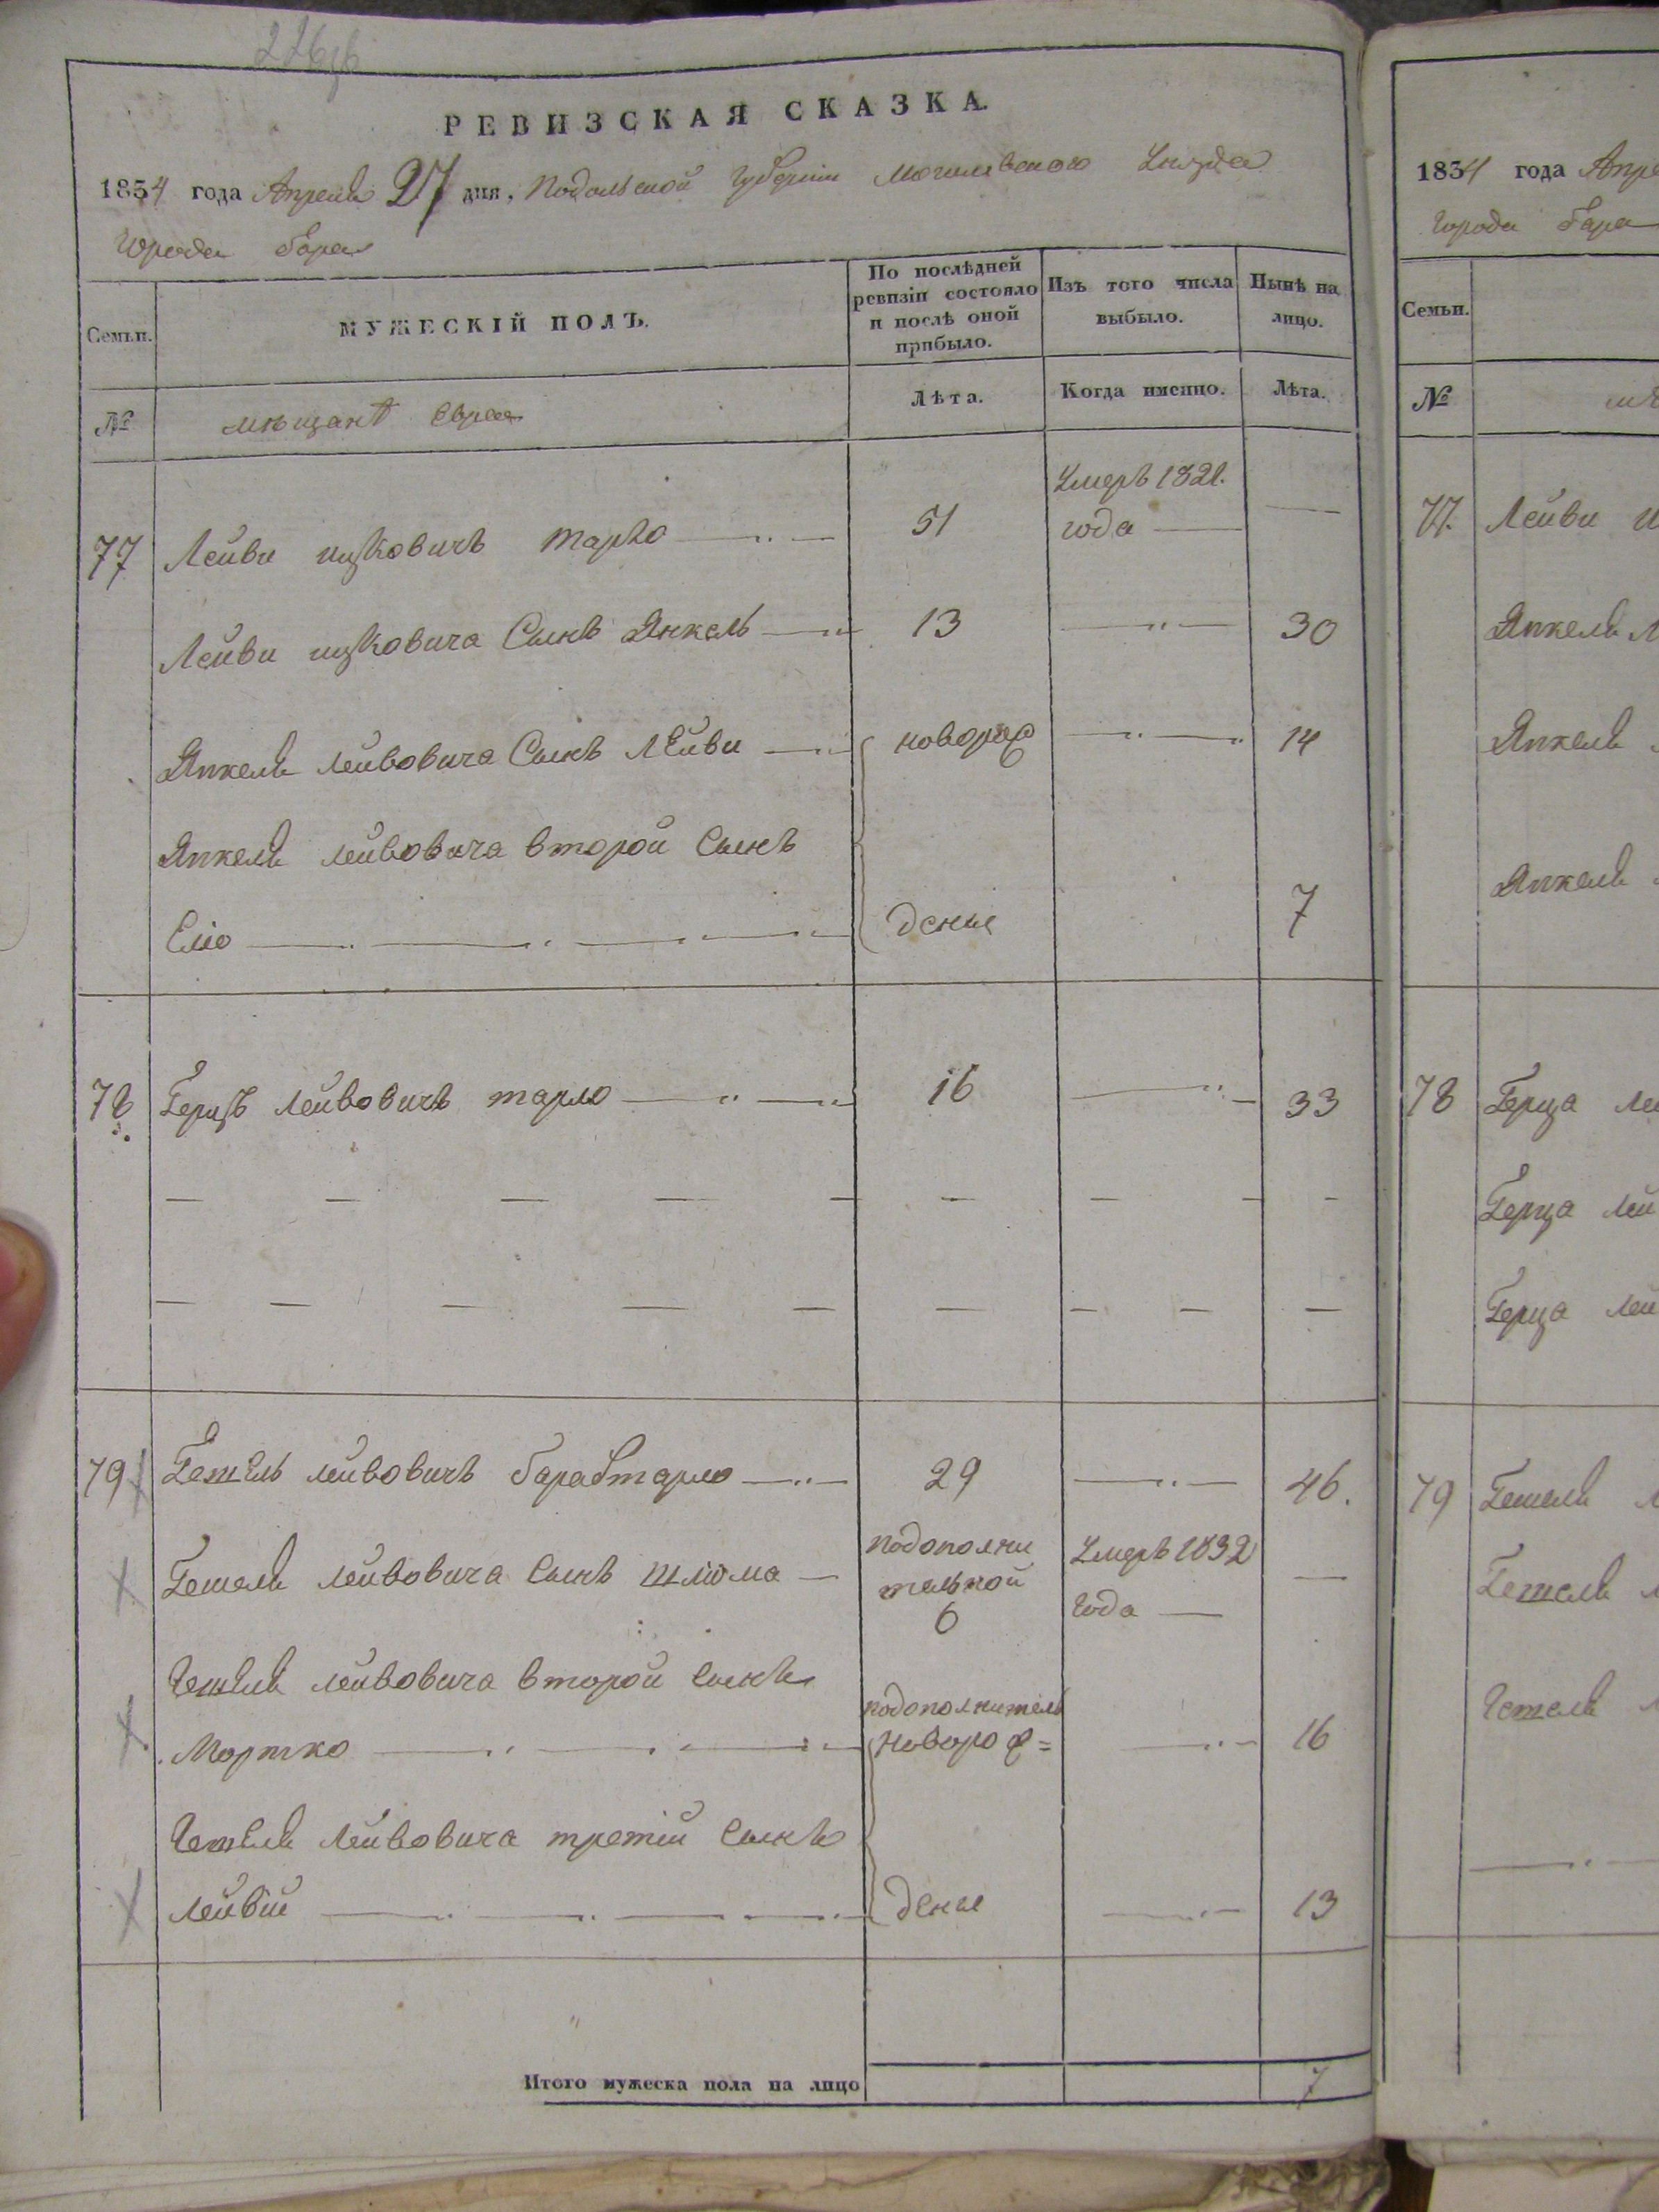 РЕВИЗСКАЯ СКАЗКА.
1834 года Апреля 27 дня, Подольской Губерніи Могилевского Уезда
Города Бара
Семьи.
МУЖЕСКІЙ ПОЛЪ.
По послѣдней ревизіи состояло и послѣ оной прибыло.
Изъ того числа выбыло.
Нынѣ на лицо.
№
мещанъ Евреи
Лѣта.
Когда именно.
Лѣта.
77 Лейви Ицковичъ тарло 51 Умеръ 1821. года
Лейви Ицковича Сынъ Янкель 13 30
Янкеля Лейбовича Сынъ Лейви новорож 14
Янкеля Лейвовича второй Сынъ
Еліо деные 7
78 Герцъ Лейвовичъ тарло 16 33
79 Гетель Лейвовичъ тарло 29 46.
Гетеля Лейвовича Сынъ Шлиома
подополни
тельной
6
Умеръ 1832
года
Гетеля Лейвовича второй Сынъ
Мортко
подополнитель
новорож= 16
Гетеля Лейвовича третій Сынъ
Лейвій деные 13
Итого мужеска пола на лицо 7
1834 года Апре
Города Бара
Семьи.
№
77. Лейви И
Янкеля Л
Янкеля
Янкеля
78 Герца Ле
Герца Лей
Герца Лей
79 Гетеля Л
Гетеля
Гетеля